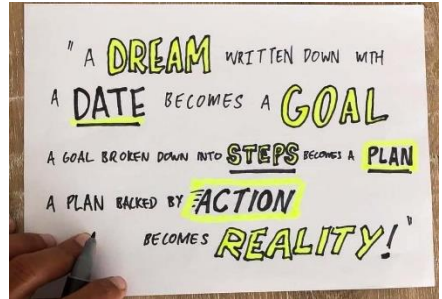 "A DREAM WRITTEN DOWN WITH
A DATE BECOMES A GOAL
A GOAL BROKEN DOWN INTO STEPS BECOMES A PLAN
A PLAN BACKED BY ACTION
BECOMES REALITY!"